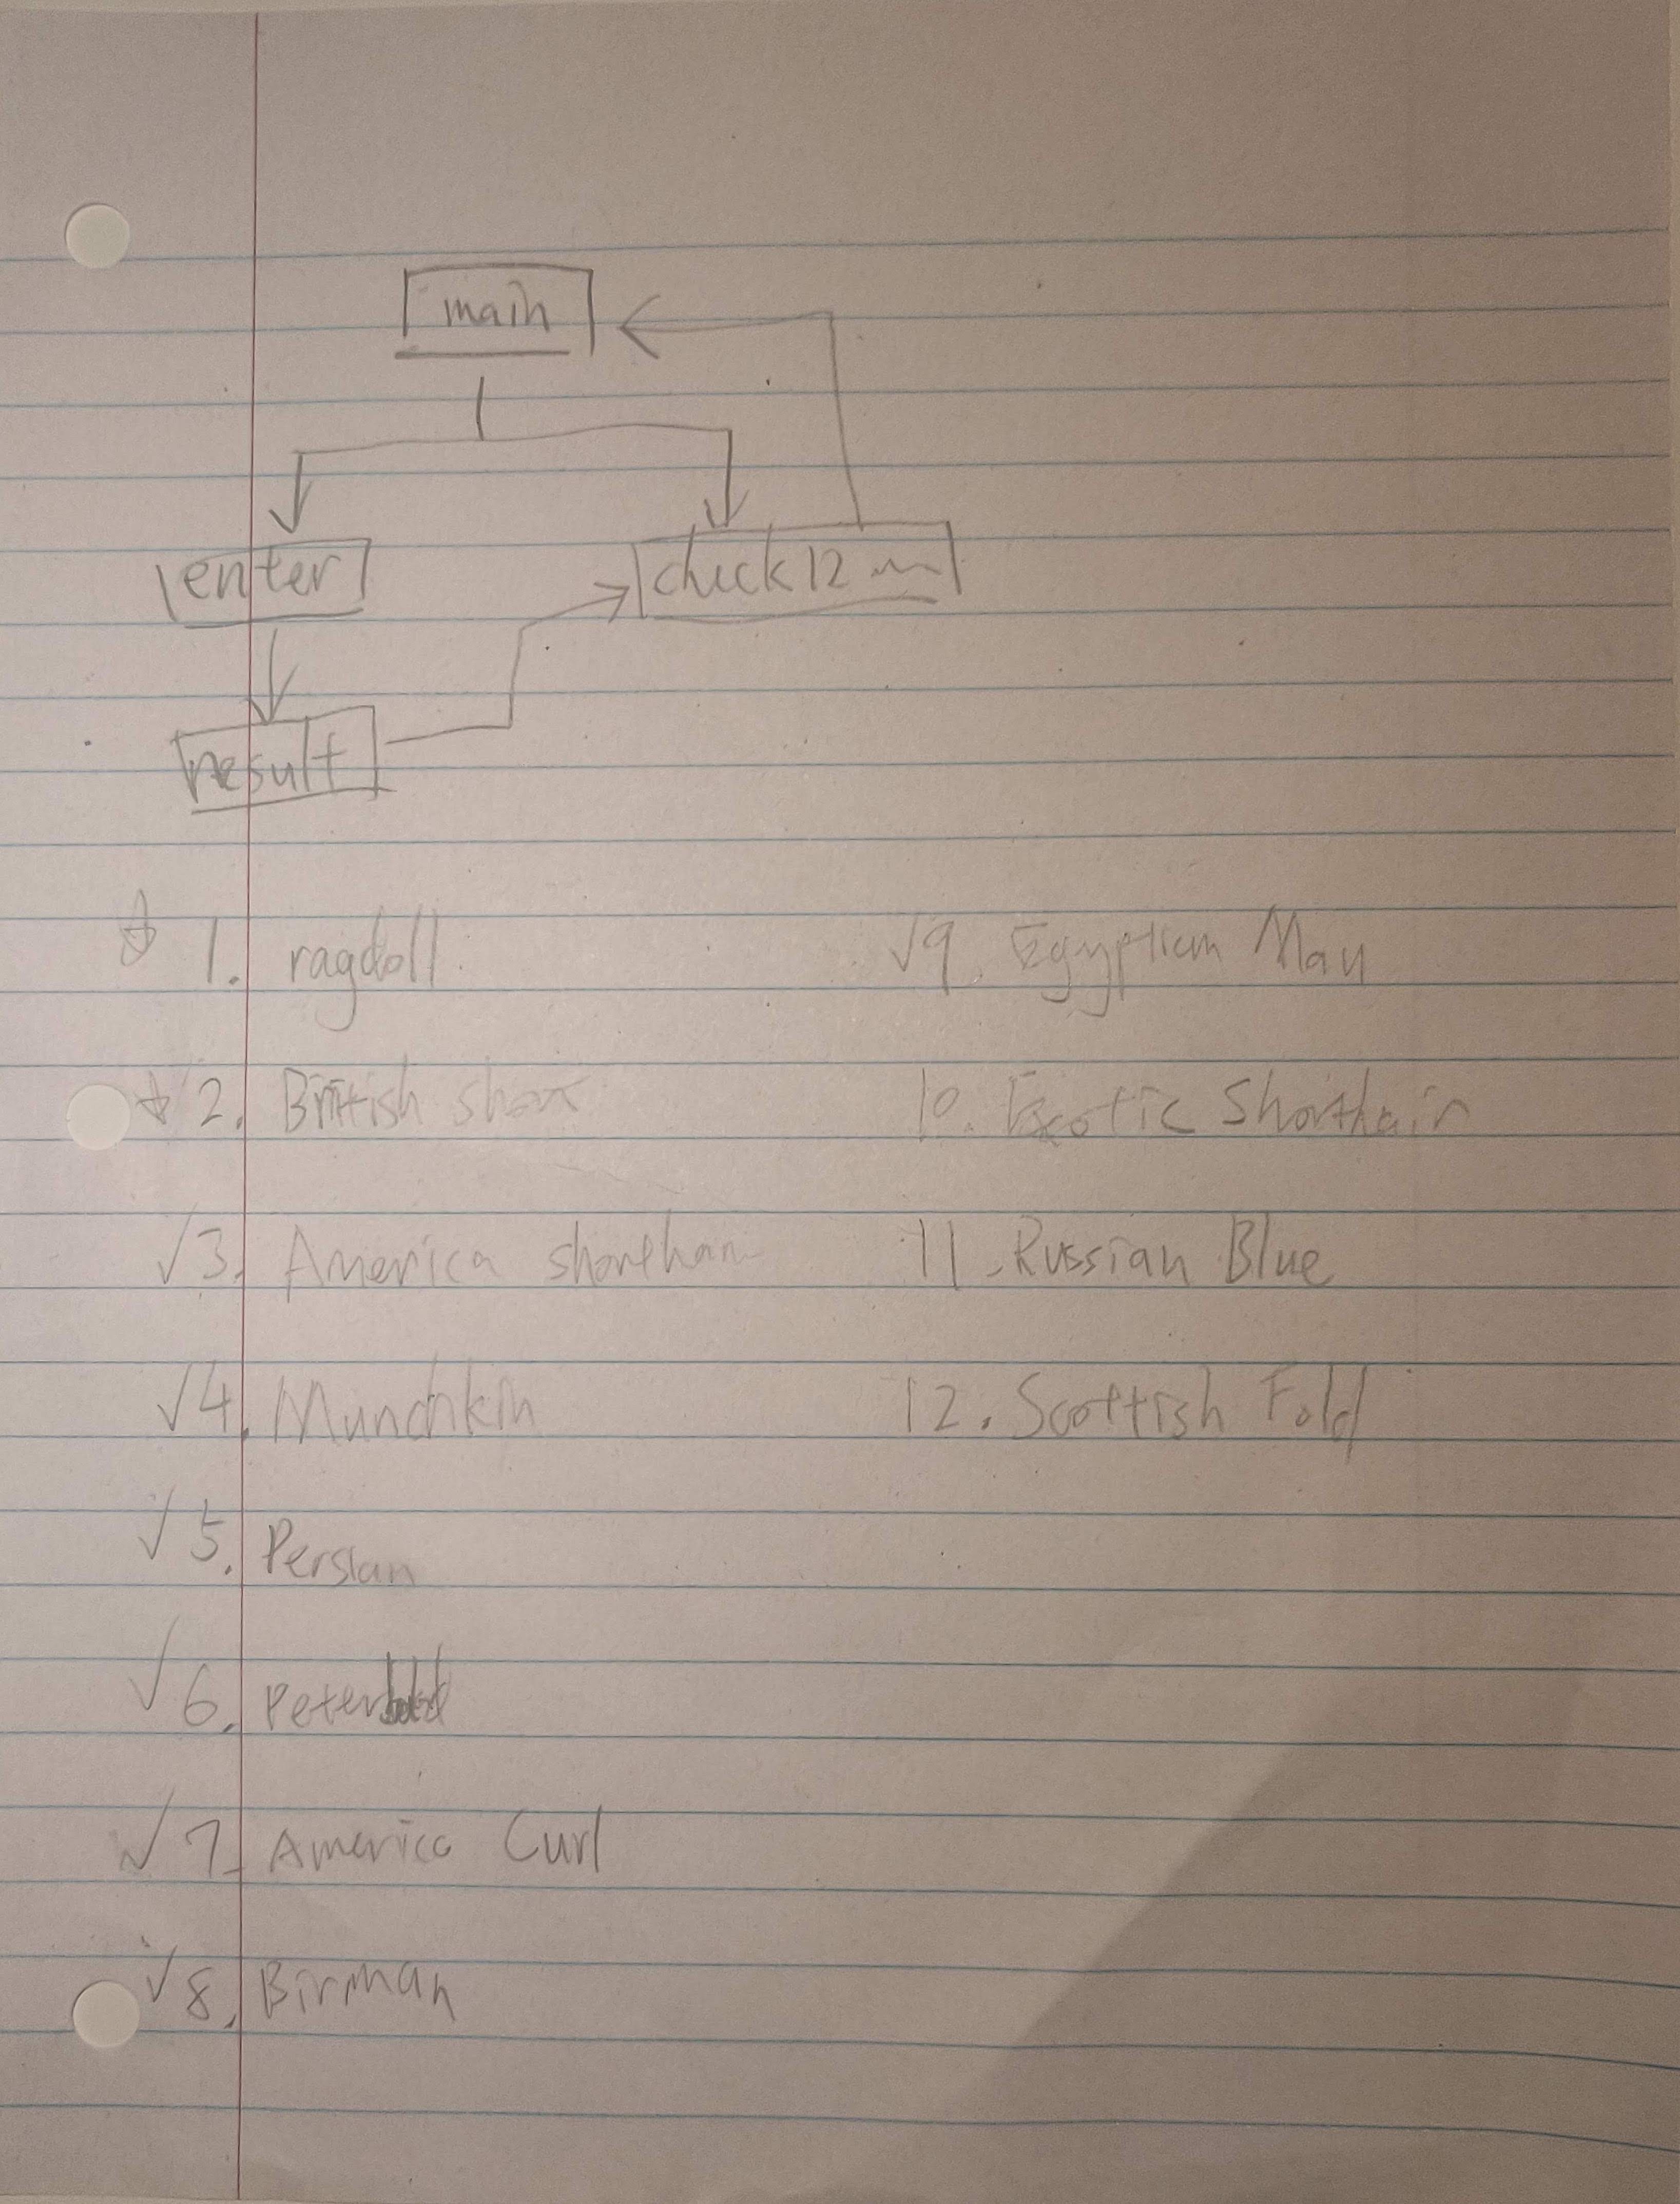 main
enter
check 12
result
1. ragdoll
√2. British short
√3. America
√4. Munchkin
√5. Persian
√6. Peterbald
√7. America Curl
√8. Birman
√9. Egyptian Mau
10. Exotic Shorthair
11. Russian Blue
12. Scottish Fold